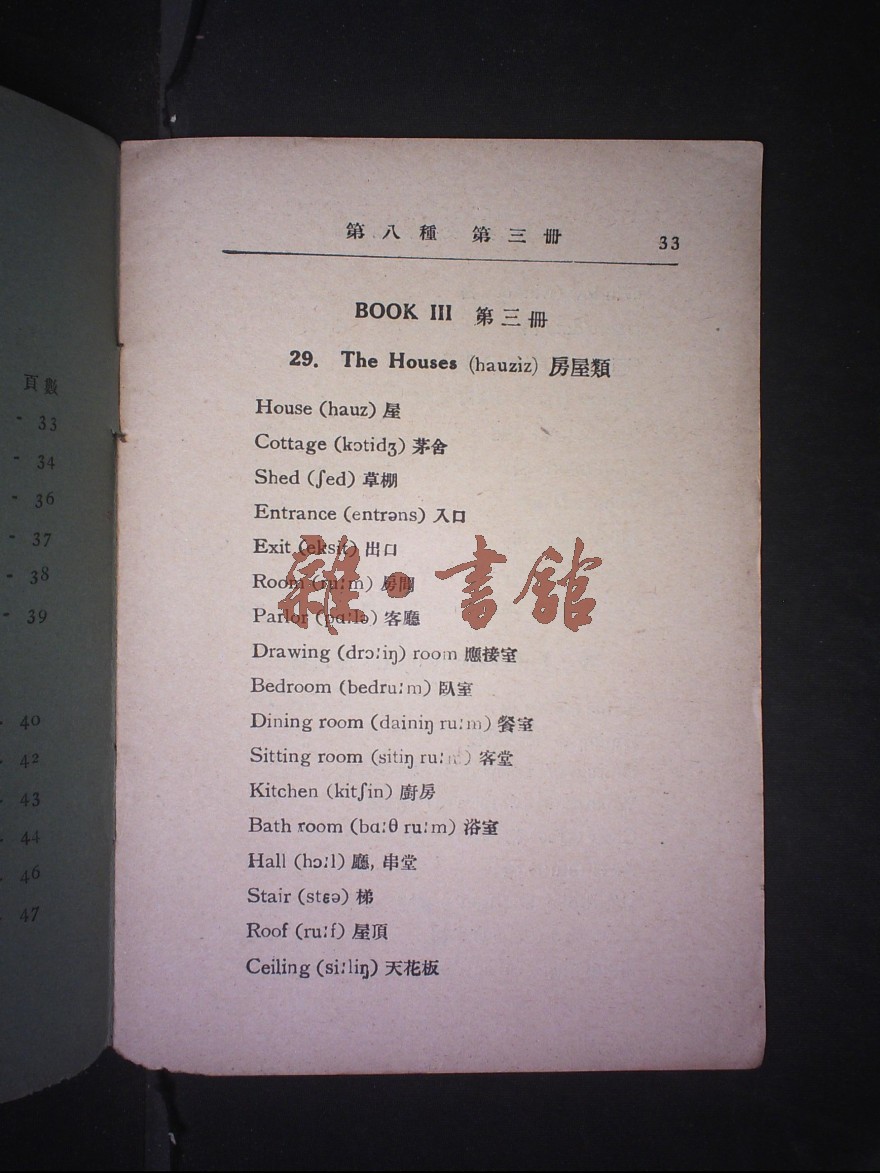 頁數
- 33
- 34
- 36
- 37
- 38
- 39
40
42
43
44
46
47
第八種 第三冊 33
BOOK III 第三冊
29. The Houses (hauziz) 房屋類
House (hauz) 屋
Cottage (kɔtidʒ) 茅舍
Shed (ʃed) 草棚
Entrance (entrəns) 入口
Exit (eksit) 出口
Room (ru:m) 房間
Parlor (pɑ:lə) 客廳
Drawing (drɔ:iŋ) room 應接室
Bedroom (bedru:m) 臥室
Dining room (dainiŋ ru:m) 餐室
Sitting room (sitiŋ ru:m) 客堂
Kitchen (kitʃin) 廚房
Bath room (bɑ:θ ru:m) 浴室
Hall (hɔ:l) 廳, 串堂
Stair (stɛə) 梯
Roof (ru:f) 屋頂
Ceiling (si:liŋ) 天花板
雜·書館